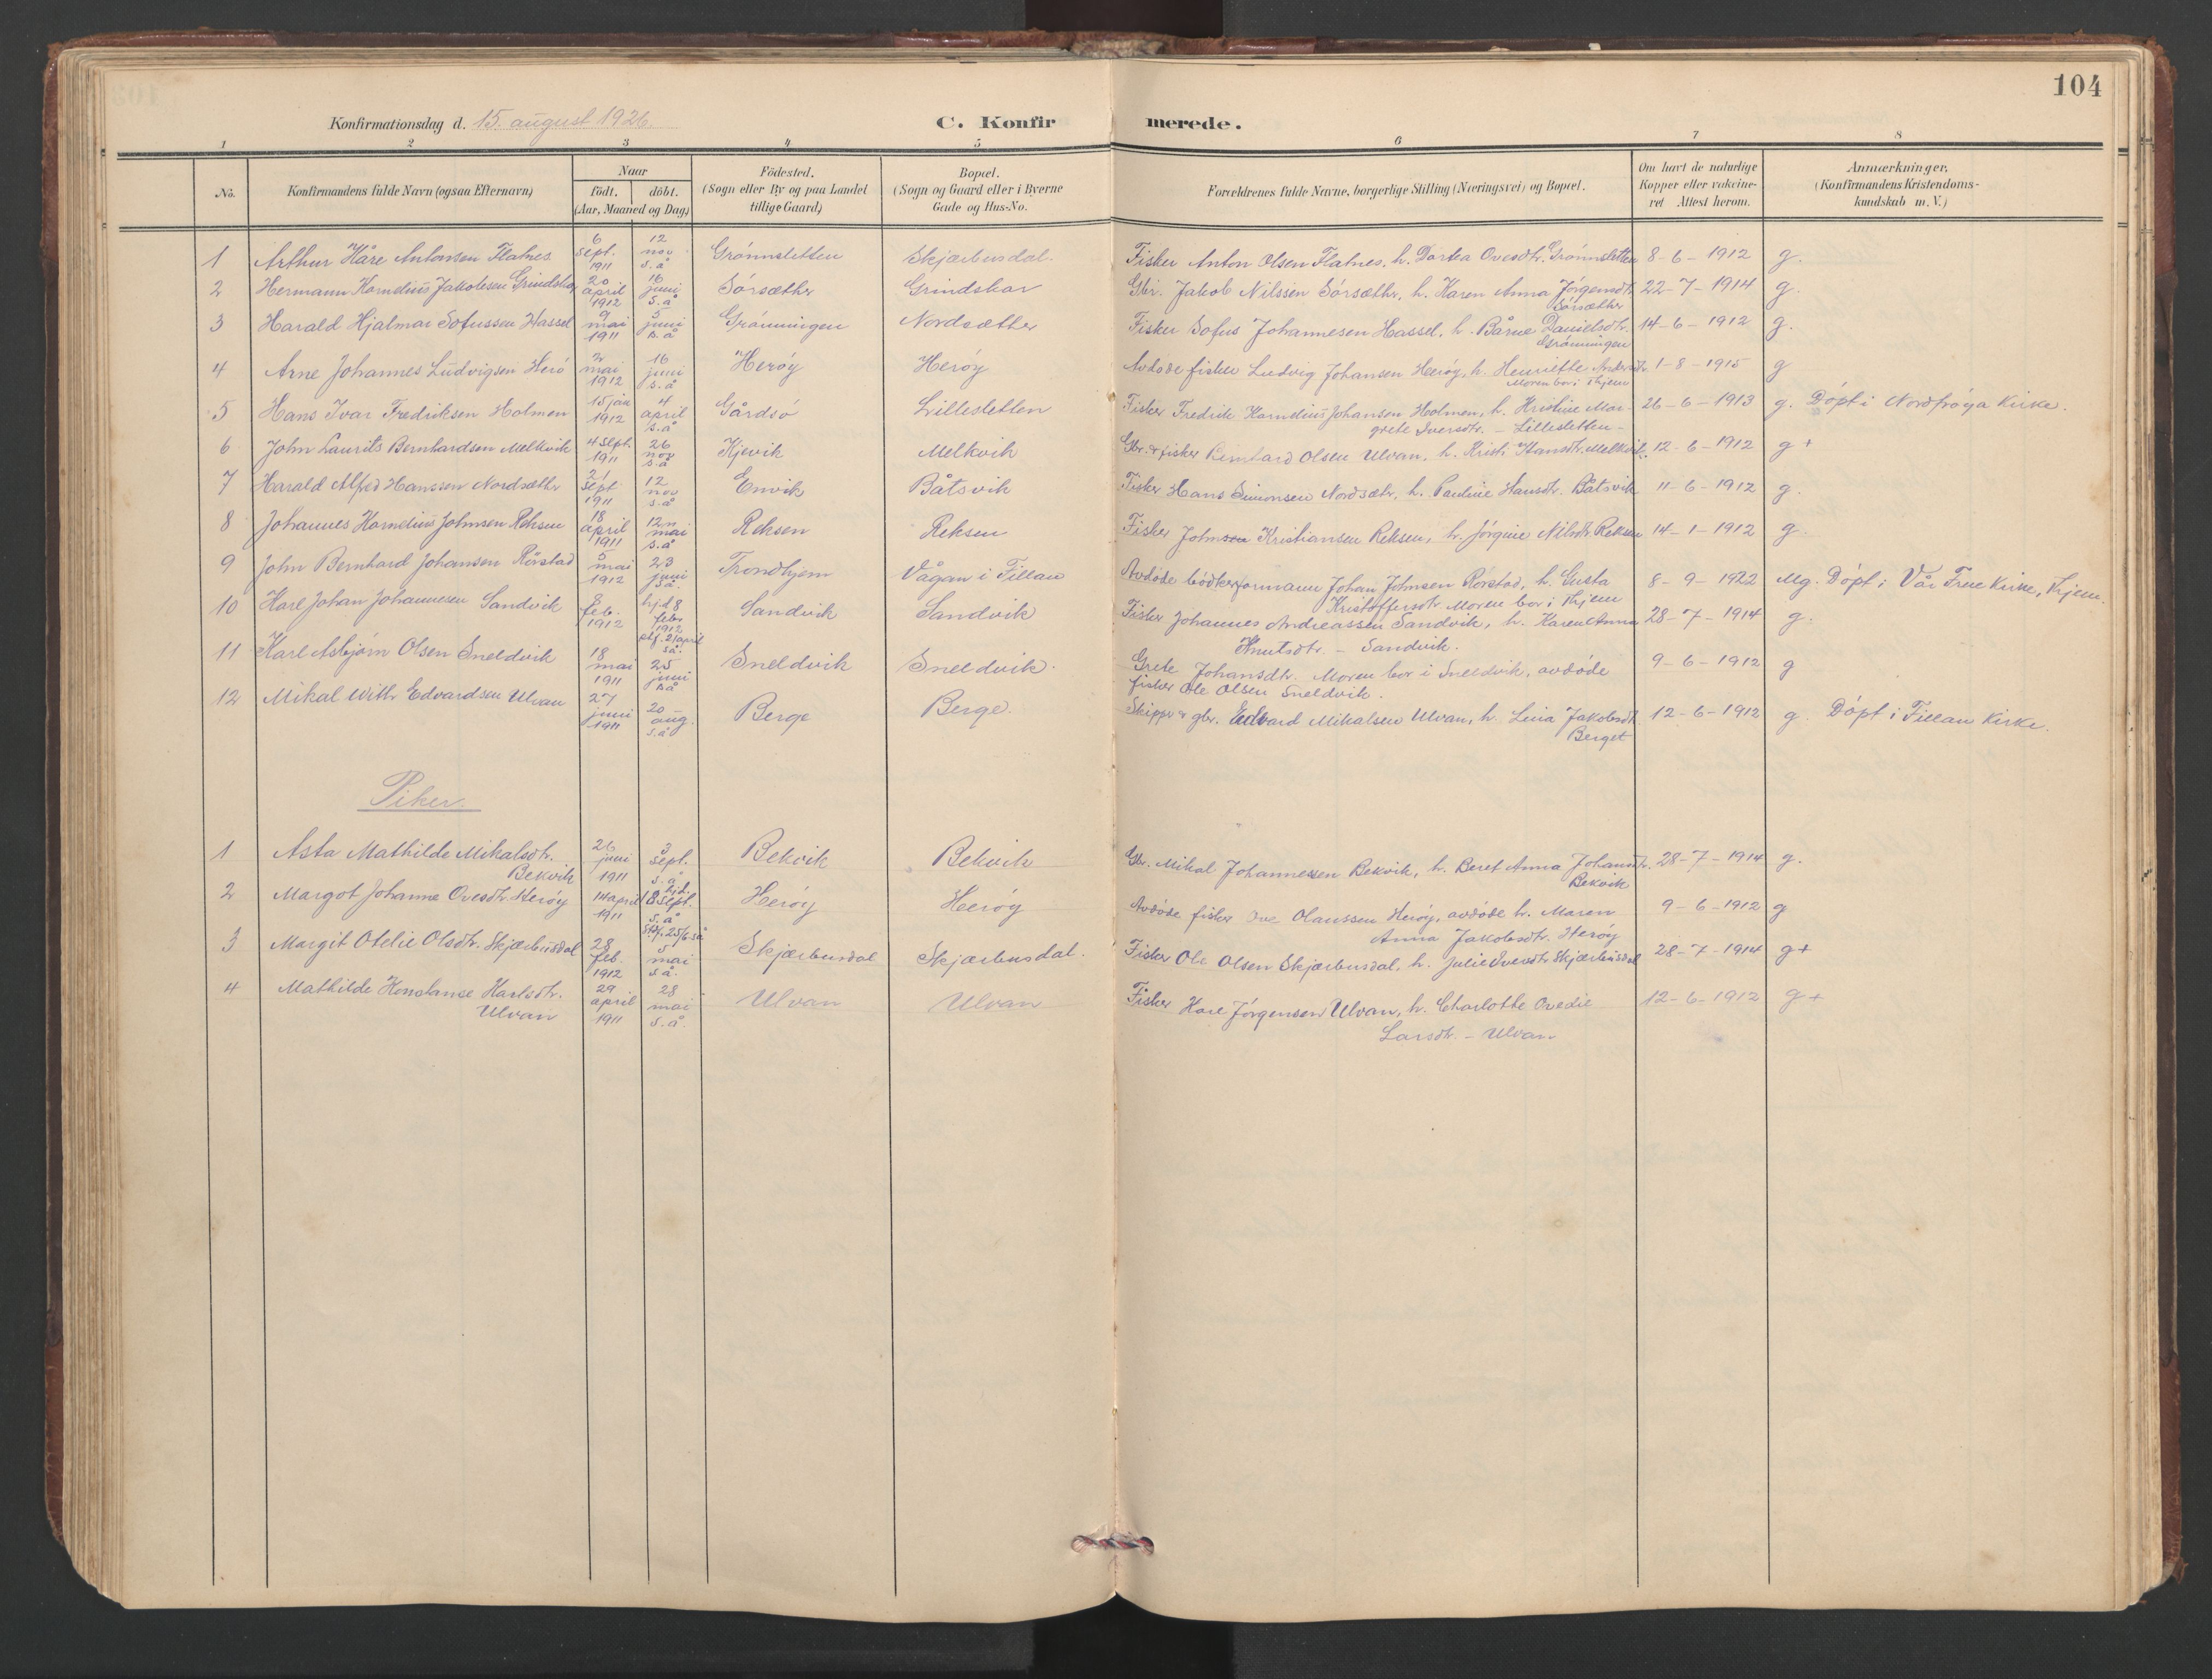 104
Konfirmationsdag d. 15. august 1926.
C. Konfirmerede.
1 2 3 4 5 6 7 8
No. Konfirmandens fulde Navn (ogsaa Efternavn) Naar født. døbt. (Aar, Maaned og Dag.) Fødested. (Sogn eller By og paa Landet tillige Gaard) Bopæl. (Sogn og Gaard eller i Byerne Gade og Hus-No. Forældrenes fulde Navne, borgerlige Stilling (Næringsvei) og Bopæl. Om havt de naturlige Kopper eller vakcineret Attest herom. Anmærkninger, (Konfirmandens Kristendomskundskab m. V.)
1 Arthur Kåre Antonsen Flatnes 6 sept. 1911 12 nov s.å Grønnsletten Skjærbusdal. Fisker Anton Olsen Flatnes, h. Dortea Ovesdtr. Grønnsletten 8-6-1912 g.
2 Hermann Kornelius Jakobsen Grindskar 20 april 1912 16 juni s.å Sørsæther Grindskar Gbr. Jakob Nilssen Sørsæthr, h. Karen Anna Jørgensdtr. Sørsæther 22-7-1914 g.
3 Harald Hjalmar Sofussen Hassel 9 mai 1911 5 juni s.å Grønningen Nordsæther Fisker Sofus Johannesen Hassel, h. Danielsdtr. Grønningen 14-6-1912 g.
4 Arne Johannes Ludvigsen Herö 2 mai 1912 16 juni s.å Herøy Herøy Avdøde fisker Ludvig Johansen Herøy, h. Henriette Andersdtr. Moren bor i Thjem 1-8-1915 g
5 Hans Ivar Fredriksen Holmen 15 jan 1912 4 april s.å Gårdsø Lillesletten Fisker Fredrik Kornelius Johansen Holmen, h. Kristine Margrete Iversdtr. - Lillesletten - 26-6-1913 g. Døpt i Nordfrøya Kirke.
6 John Laurits Bernhardsen Melkvik 4 sept. 1911 26 nov s.å Kjevik Melkvik Gbr. & fisker Bernhard Olsen Ulvan, h. Kristi Hansdtr. Melkvik. 12-6-1912 g +
7 Harald Alfred Hanssen Nordsæthr 21 sept 1911 12 nov s.å Envik Båtsvik Fisker Hans Simonsen Nordsæter, h. Pauline Hansdtr. Båtsvik 11-6-1912 g.
8 Johannes Kornelius Johnsen Reksen 18 april 1911 12 mai s.å Reksen Reksen Fisker John Kristiansen Reksen, h. Jørgine Nilsdtr. Reksen 14-1-1912 g.
9 John Bernhard Johansen Rørstad 5 mai 1912 23 juni s.å Trondhjem Vågan i Fillan Avdøde bødkerformann Johan Johnsen Rørstad, h. Gusta Kristoffersdtr. Moren bor i Thjem 8-9-1922 Mg. Døpt i Vår Frue Kirke, Thjem.
10 Karl Johan Johannesen Sandvik 8 feb. 1912 hjd. 8 feb. 1912 stf. 21 april s.å. Sandvik Sandvik Fisker Johannes Andreassen Sandvik, h. Karen Anna Knutsdtr. - Sandvik. 28-7-1914 g.
11 Karl Asbjørn Olsen Sneldvik 18 mai 1911 25 juni s.å Sneldvik Sneldvik. Grete Johansdtr. Moren bor i Sneldvik, avdøde fisker Ole Olsen Sneldvik. 9-6-1912 g
12 Mikal Withr Edvardsen Ulvan 27 juni 1911 20 aug. s.å Berge Berge. Skipper & gbr. Edvard Mikalsen Ulvan, h. Lina Jakobsdtr. Berget 12-6-1912 g. Døpt i Fillan Kirke.
Piker.
1 Asta Mathilde Mikalsdtr. Bekvik 26 juni 1911 3 sept. s.å Bekvik Bekvik Gbr. Mikal Johannessen Bekvik, h. Beret Anna Johansdtr. Bekvik 28-7-1914 g.
2 Margot Johanne Ovesdtr. Herøy 14 april 1911 hjd. sept. s.å stf. 25/6 så Herøy Herøy Avdøde fisker Ove Olaussen Herøy, avdøde h. Maren Anna Jakobsdtr. Herøy 9-6-1912 g
3 Margit Otelie Olsdtr. Skjærbusdal 28 feb. 1912 5 mai s.å. Skjærbusdal Skjærbusdal. Fisker Ole Olsen Skjærbusdal, h. Julie Iversdtr. Skjærbusdal 28-7-1914 g +
4 Mathilde Konstanse Karlsdtr. Ulvan 29 april 1911 28 mai s.å. Ulvan Ulvan Fisker Karl Jørgensen Ulvan, h. Charlotte Ovedie Larsdtr. - Ulvan 12-6-1912 g +